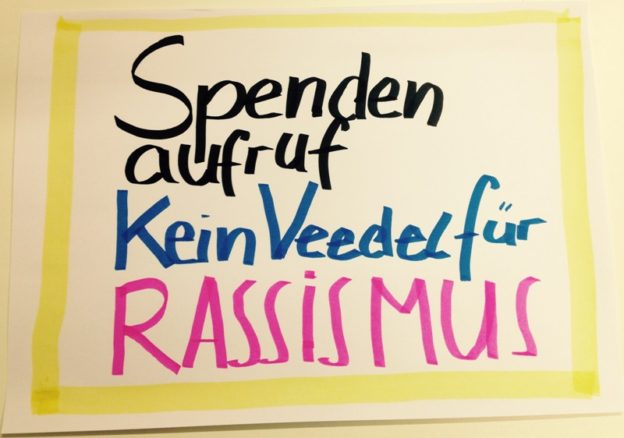 Spenden
aufruf
Kein Veedel für
RASSiSMUS